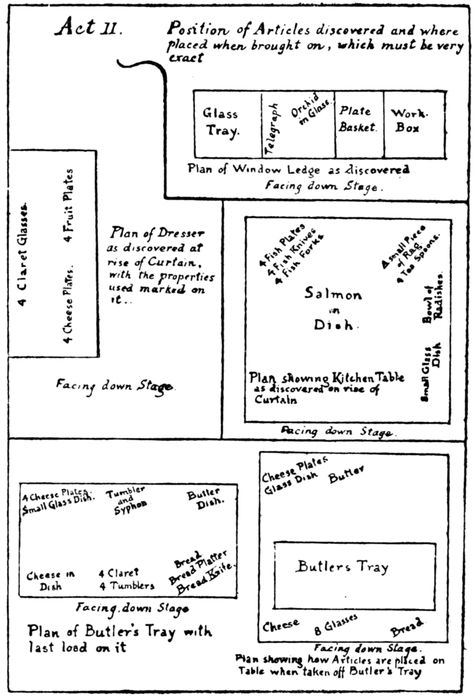 Act II.
Position of Articles discovered and where
placed when brought on, which must be very
exact
Glass
Tray.
Telegraph
Orchid
in Glass.
Plate
Basket.
Work.
Box
Plan of Window Ledge as discovered
Facing down Stage.
4 Claret Glasses.
4 Fruit Plates
4 Cheese Plates.
Plan of Dresser
as discovered at
rise of Curtain,
with the properties
used marked on
it..
Facing down Stage.
4 Fish Plates
4 Fish Knives
4 Fish Forks
A small Piece
of Rag
4 Tea Spoons.
Salmon
in
Dish.
Bowl of
Radishes.
Small Glass
Dish
Plan showing Kitchen Table
as discovered on rise of
Curtain
Facing down Stage.
4 Cheese Plates.
Small Glass Dish.
Tumbler
and
Syphon
Butter
Dish.
Cheese in
Dish
4 Claret
4 Tumblers
Bread
Bread Platter
Bread Knife.
Facing down Stage
Plan of Butler's Tray with
last load on it
Cheese Plates
Glass Dish
Butter
Butlers Tray
Cheese
8 Glasses
Bread
Facing down Stage.
Plan showing how Articles are placed on
Table when taken off Butler's Tray